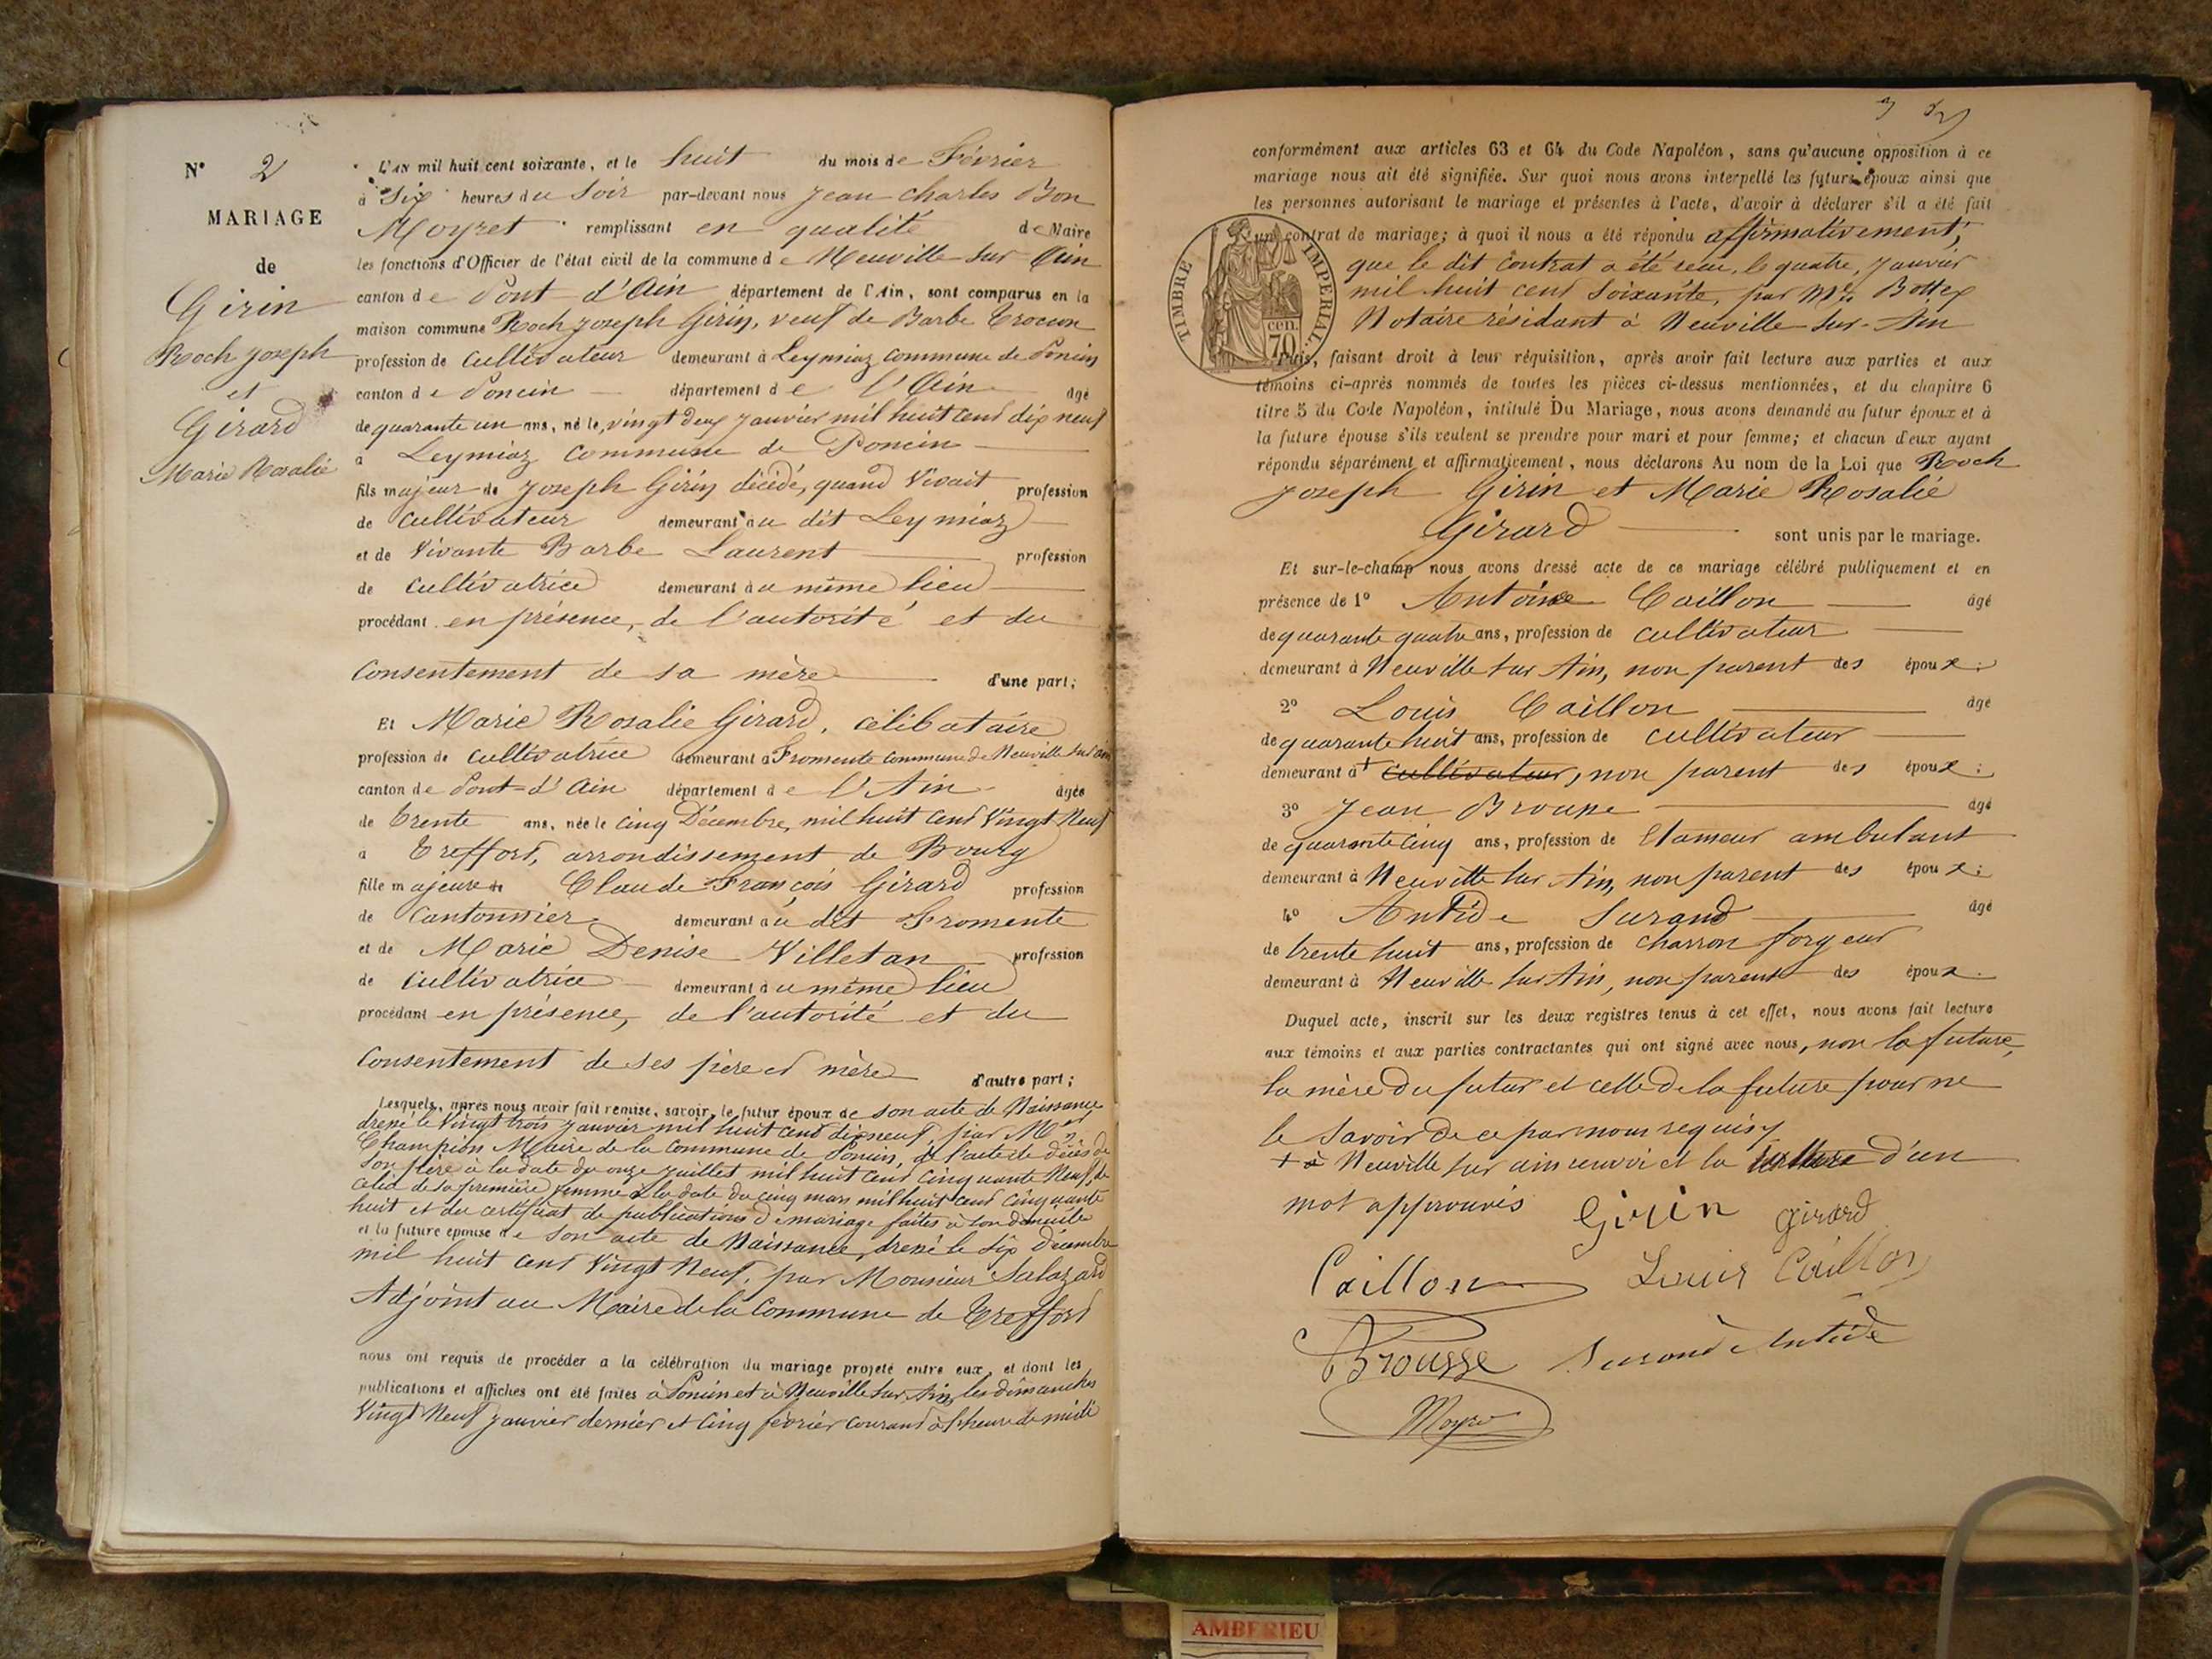 N° 2
MARIAGE
de
Girin
Roch Joseph
et
Girard
Marie Rosalie
L'an mil huit cent soixante, et le huit du mois de Février
à Six heures du Soir par-devant nous Jean Charles Bon
Moyret remplissant en qualité de Maire
les fonctions d'Officier de l'état civil de la commune de Neuville sur Ain
canton de Pont d'Ain département de l'Ain, sont comparus en la
maison commune Roch Joseph Girin, veuf de Barbe Trocon
profession de Cultivateur demeurant à Leymiaz commune de Poncin
canton de Poncin département de l'Ain âgé
de quarante un ans, né le vingt deux Janvier mil huit cent dix neuf
à Leymiaz Commune de Poncin
fils majeur de Joseph Girin décédé, quand Vivait profession
de Cultivateur demeurant au dit Leymiaz
et de Vivante Barbe Laurent profession
de Cultivatrice demeurant au même lieu
procédant en présence, de l'autorité et du
Consentement de sa mère d'une part;
Et Marie Rosalie Girard, célibataire
profession de Cultivatrice demeurant à Fromente commune de Neuville sur Ain
canton de Pont-d'Ain département de l'Ain âgée
de Trente ans, née le cinq Décembre, mil huit Cent Vingt Neuf
à Treffort, arrondissement de Bourg
fille majeure de Claude François Girard profession
de Cantonnier demeurant au dit Fromente
et de Marie Denise Villetan profession
de Cultivatrice demeurant au même lieu
procédant en présence, de l'autorité et du
Consentement de ses père et mère d'autre part;
Lesquels, après nous avoir fait remise, savoir, le futur époux de son acte de Naissance
dressé le Vingt trois Janvier mil huit cent dix neuf, par Mr
Champion Maire de la Commune de Poncin, de l'acte de décès de
son père à la date du onze Juillet mil huit cent Cinquante Neuf, de
celui de sa première femme à la date du cinq mars mil huit cent Cinquante
huit et du certificat de publications de mariage faites à son domicile
et la future épouse de son acte de Naissance, dressé le six Décembre
mil huit cent Vingt Neuf, par Monsieur Salazard
Adjoint au Maire de la Commune de Treffort
nous ont requis de procéder à la célébration du mariage projeté entre eux, et dont les
publications et affiches ont été faites à Poncin et à Neuville sur Ain, les dimanches
Vingt Neuf Janvier dernier et Cinq février courant à l'heure de midi
conformément aux articles 63 et 64 du Code Napoléon, sans qu'aucune opposition à ce
mariage nous ait été signifiée. Sur quoi nous avons interpellé les futurs époux ainsi que
les personnes autorisant le mariage et présentes à l'acte, d'avoir à déclarer s'il a été fait
un contrat de mariage; à quoi il nous a été répondu affirmativement,
que le dit Contrat a été reçu, le quatre, Janvier
mil huit cent Soixante, par Me Bottex
Notaire résidant à Neuville-Sur-Ain
TIMBRE IMPERIAL
70 cen.
Puis, faisant droit à leur réquisition, après avoir fait lecture aux parties et aux
témoins ci-après nommés de toutes les pièces ci-dessus mentionnées, et du chapitre 6
titre 5 du Code Napoléon, intitulé Du Mariage, nous avons demandé au futur époux et à
la future épouse s'ils veulent se prendre pour mari et pour femme; et chacun d'eux ayant
répondu séparément et affirmativement, nous déclarons Au nom de la Loi que Roch
Joseph Girin et Marie Rosalie
Girard sont unis par le mariage.
Et sur-le-champ nous avons dressé acte de ce mariage célébré publiquement et en
présence de 1° Antoine Caillon âgé
de quarante quatre ans, profession de cultivateur
demeurant à Neuville sur Ain, non parent des époux;
2° Louis Caillon âgé
de quarante huit ans, profession de cultivateur
demeurant à + cultivateur, non parent des époux;
3° Jean Brousse âgé
de quarante cinq ans, profession de Etameur ambulant
demeurant à Neuville sur Ain, non parent des époux;
4° Antide Surand âgé
de trente huit ans, profession de charron forgeur
demeurant à Neuville sur Ain, non parent des époux.
Duquel acte, inscrit sur les deux registres tenus à cet effet, nous avons fait lecture
aux témoins et aux parties contractantes qui ont signé avec nous, non la future,
la mère du futur et celle de la future pour ne
le savoir de ce par nous requis
+ à Neuville sur ain renvoi et la d'un
mot approuvés Girin girard
Caillon Louis Caillon
Brousse Surand Antide
Moyret
AMBERIEU